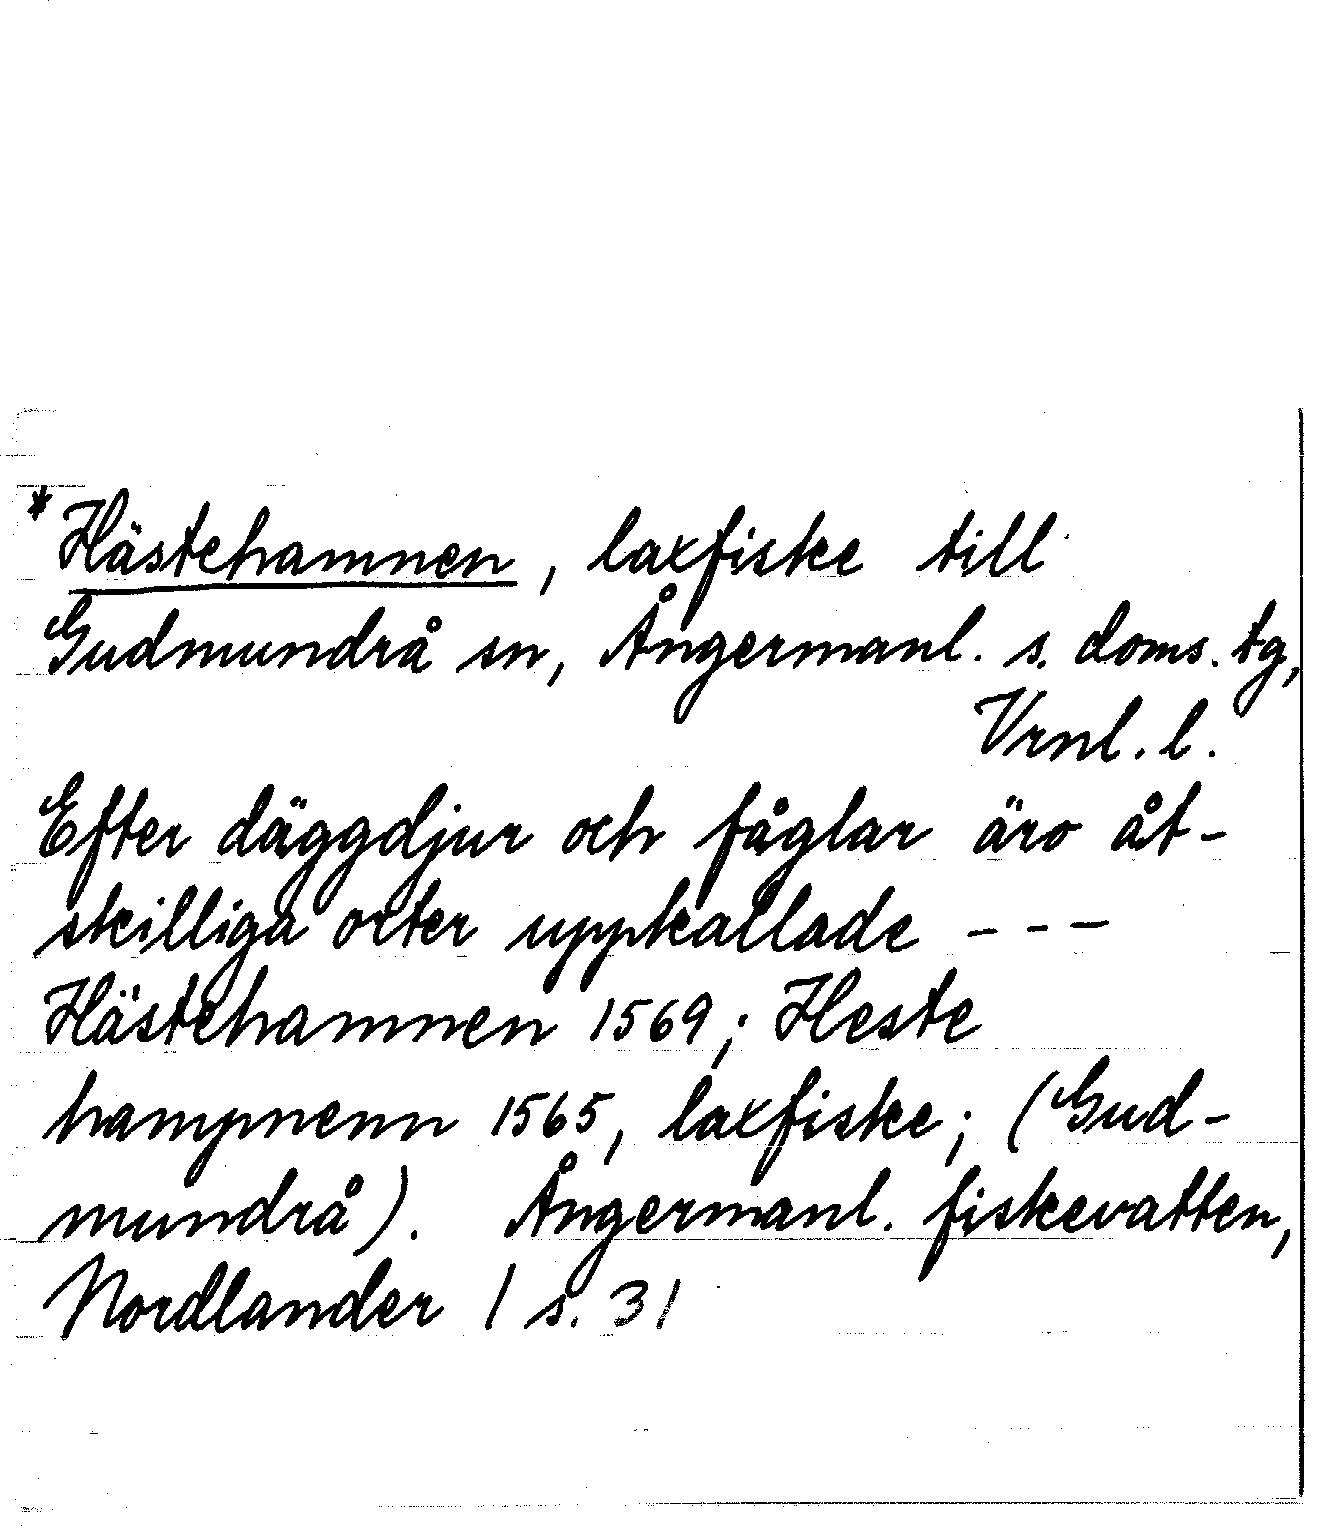 *Hästehamnen, laxfiske till
Gudmundrå sn, Ångermanl. s. doms. tg,
Vrnl. l.
Efter däggdjur och fåglar äro åt-
skilliga orter uppkallade ---
Hästehamnen 1569; Heste
hampnenn 1565, laxfiske; (Gud-
mundrå). Ångermanl. fiskevatten,
Nordlander 1 s. 31